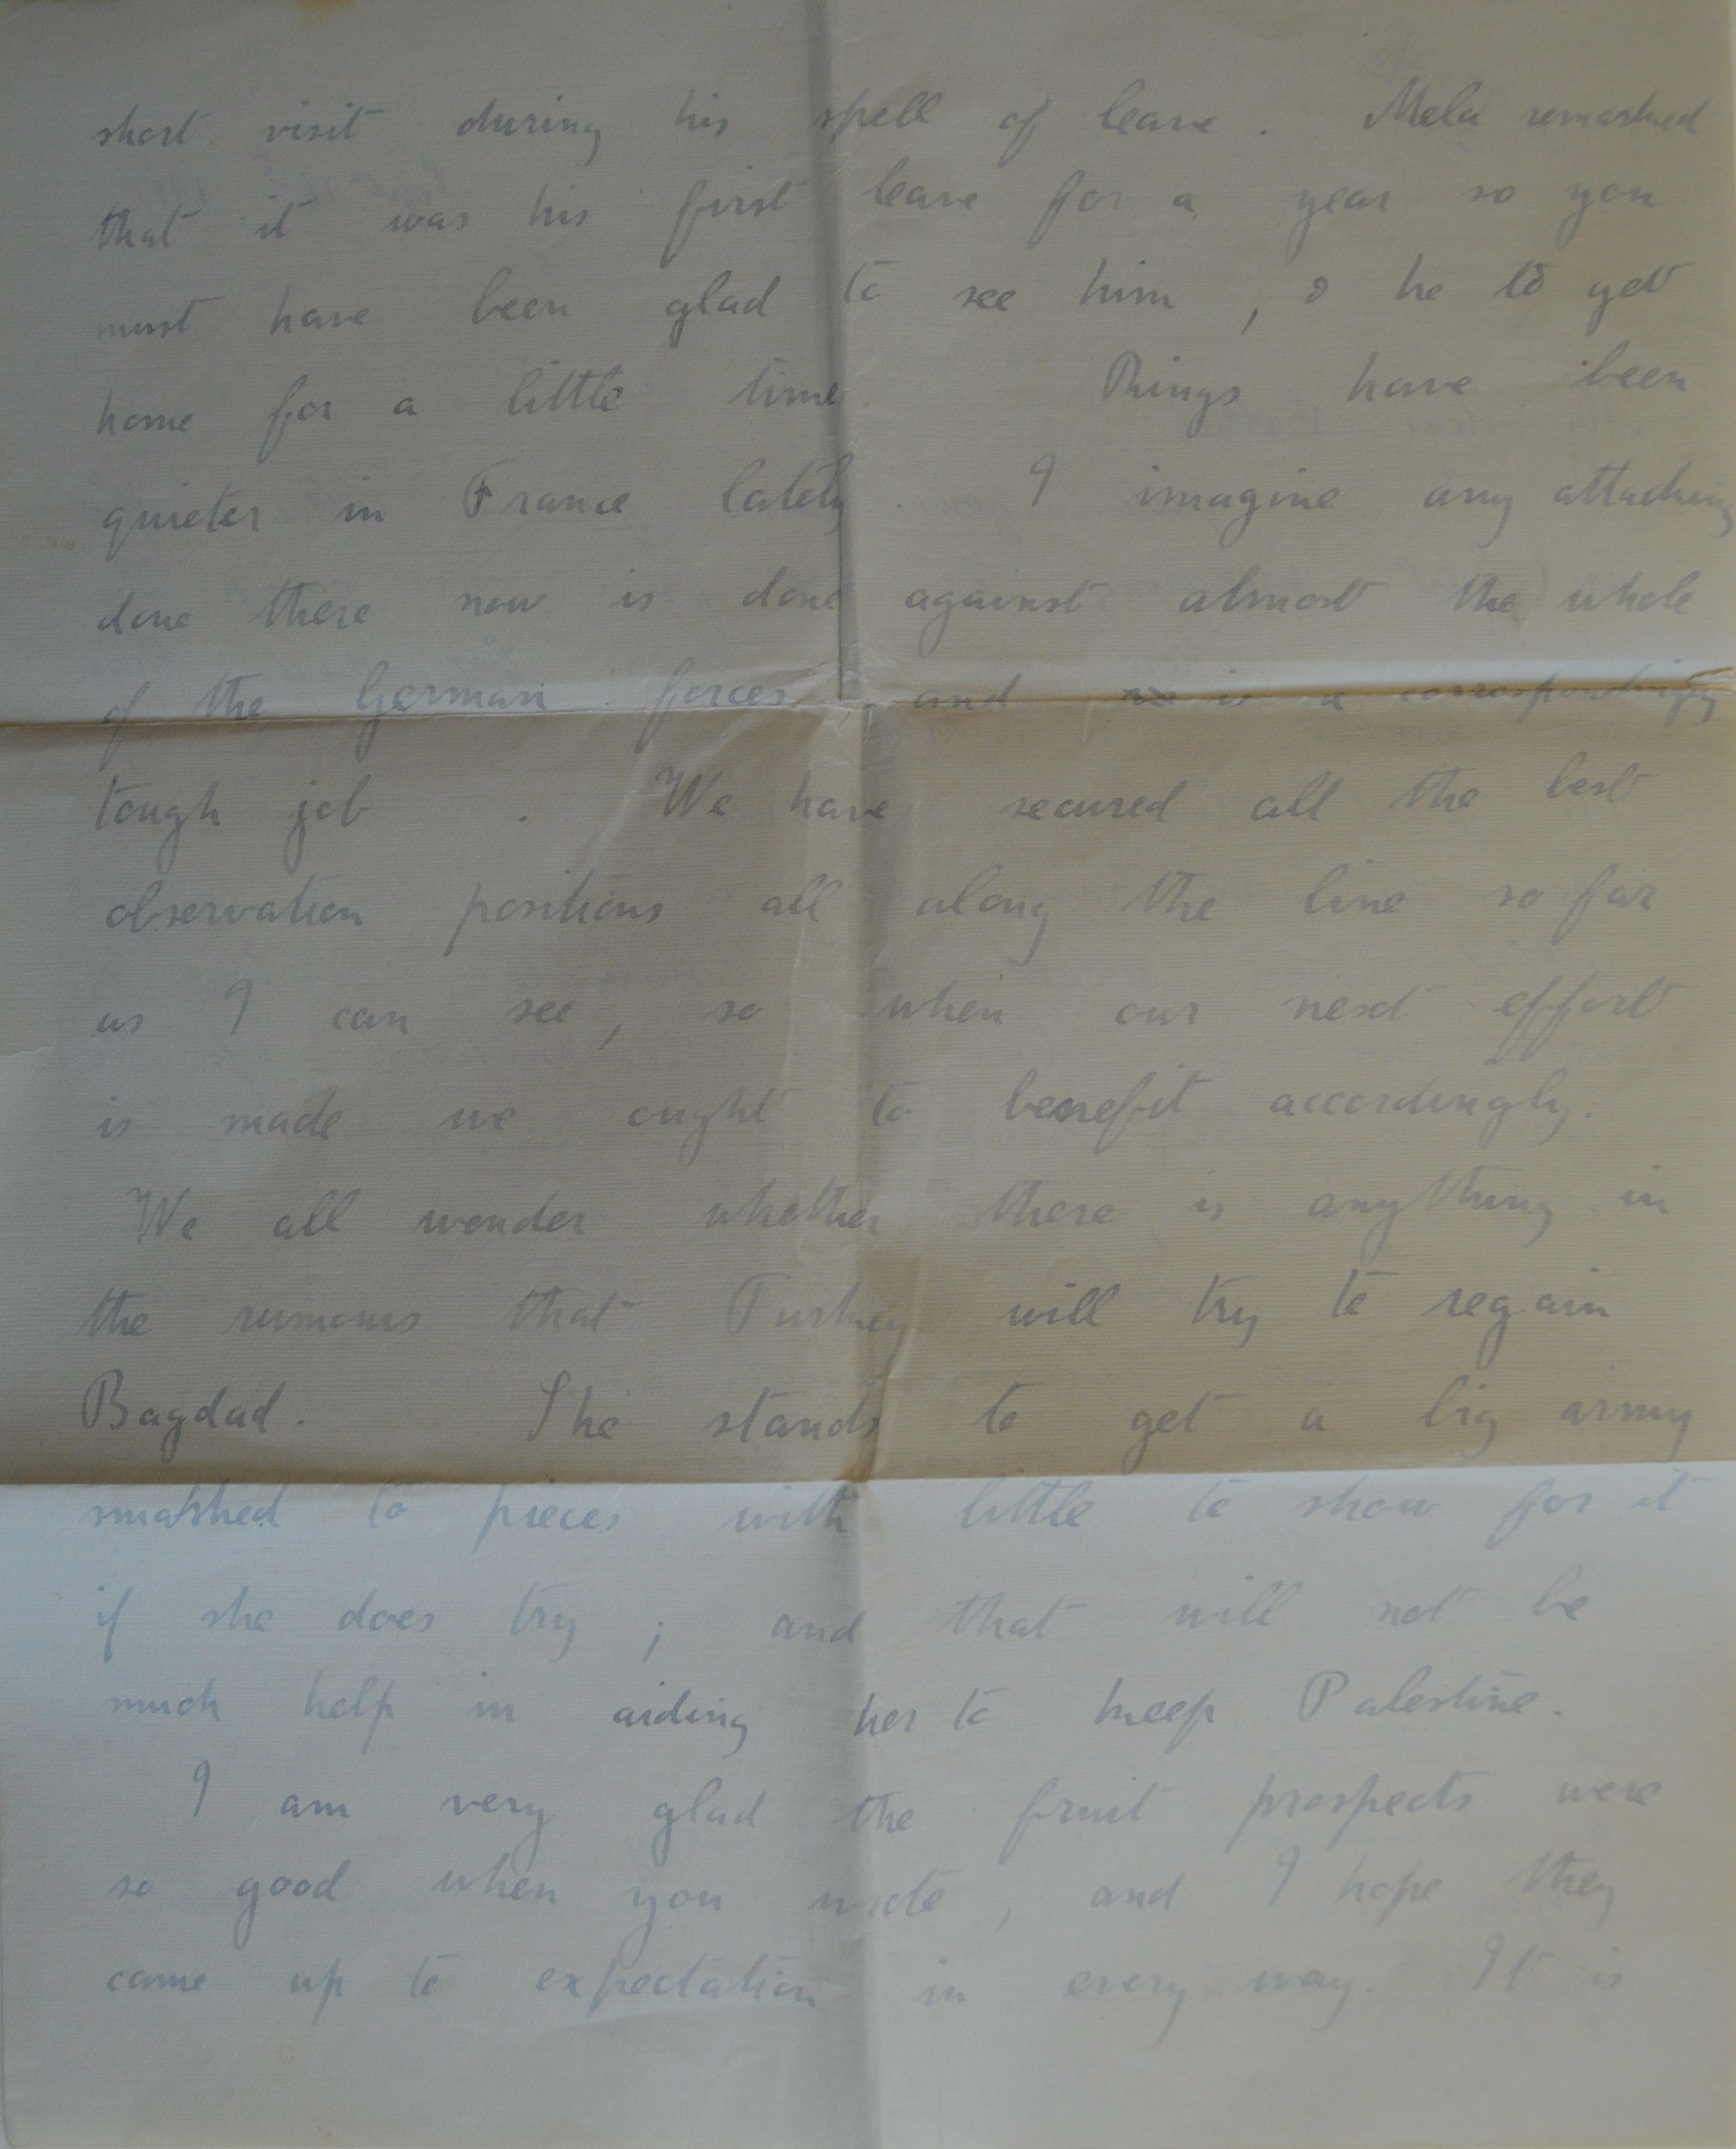 short visit during his spell of leave. Mela remarked
that it was his first leave for a year so you
must have been glad to see him, & he to get
home for a little time. Things have been
quieter in France lately. I imagine any attacking
done there now is done against almost the whole
of the German forces, and is a correspondingly
tough job. We have secured all the best
observation positions all along the line so far
as I can see, so when our next effort
is made we ought to benefit accordingly.
We all wonder whether there is anything in
the rumours that Turkey will try to regain
Bagdad. She stands to get a big army
smashed to pieces with little to show for it
if she does try; and that will not be
much help in aiding her to keep Palestine.
I am very glad the fruit prospects were
so good when you wrote, and I hope they
came up to expectation in every way. It is